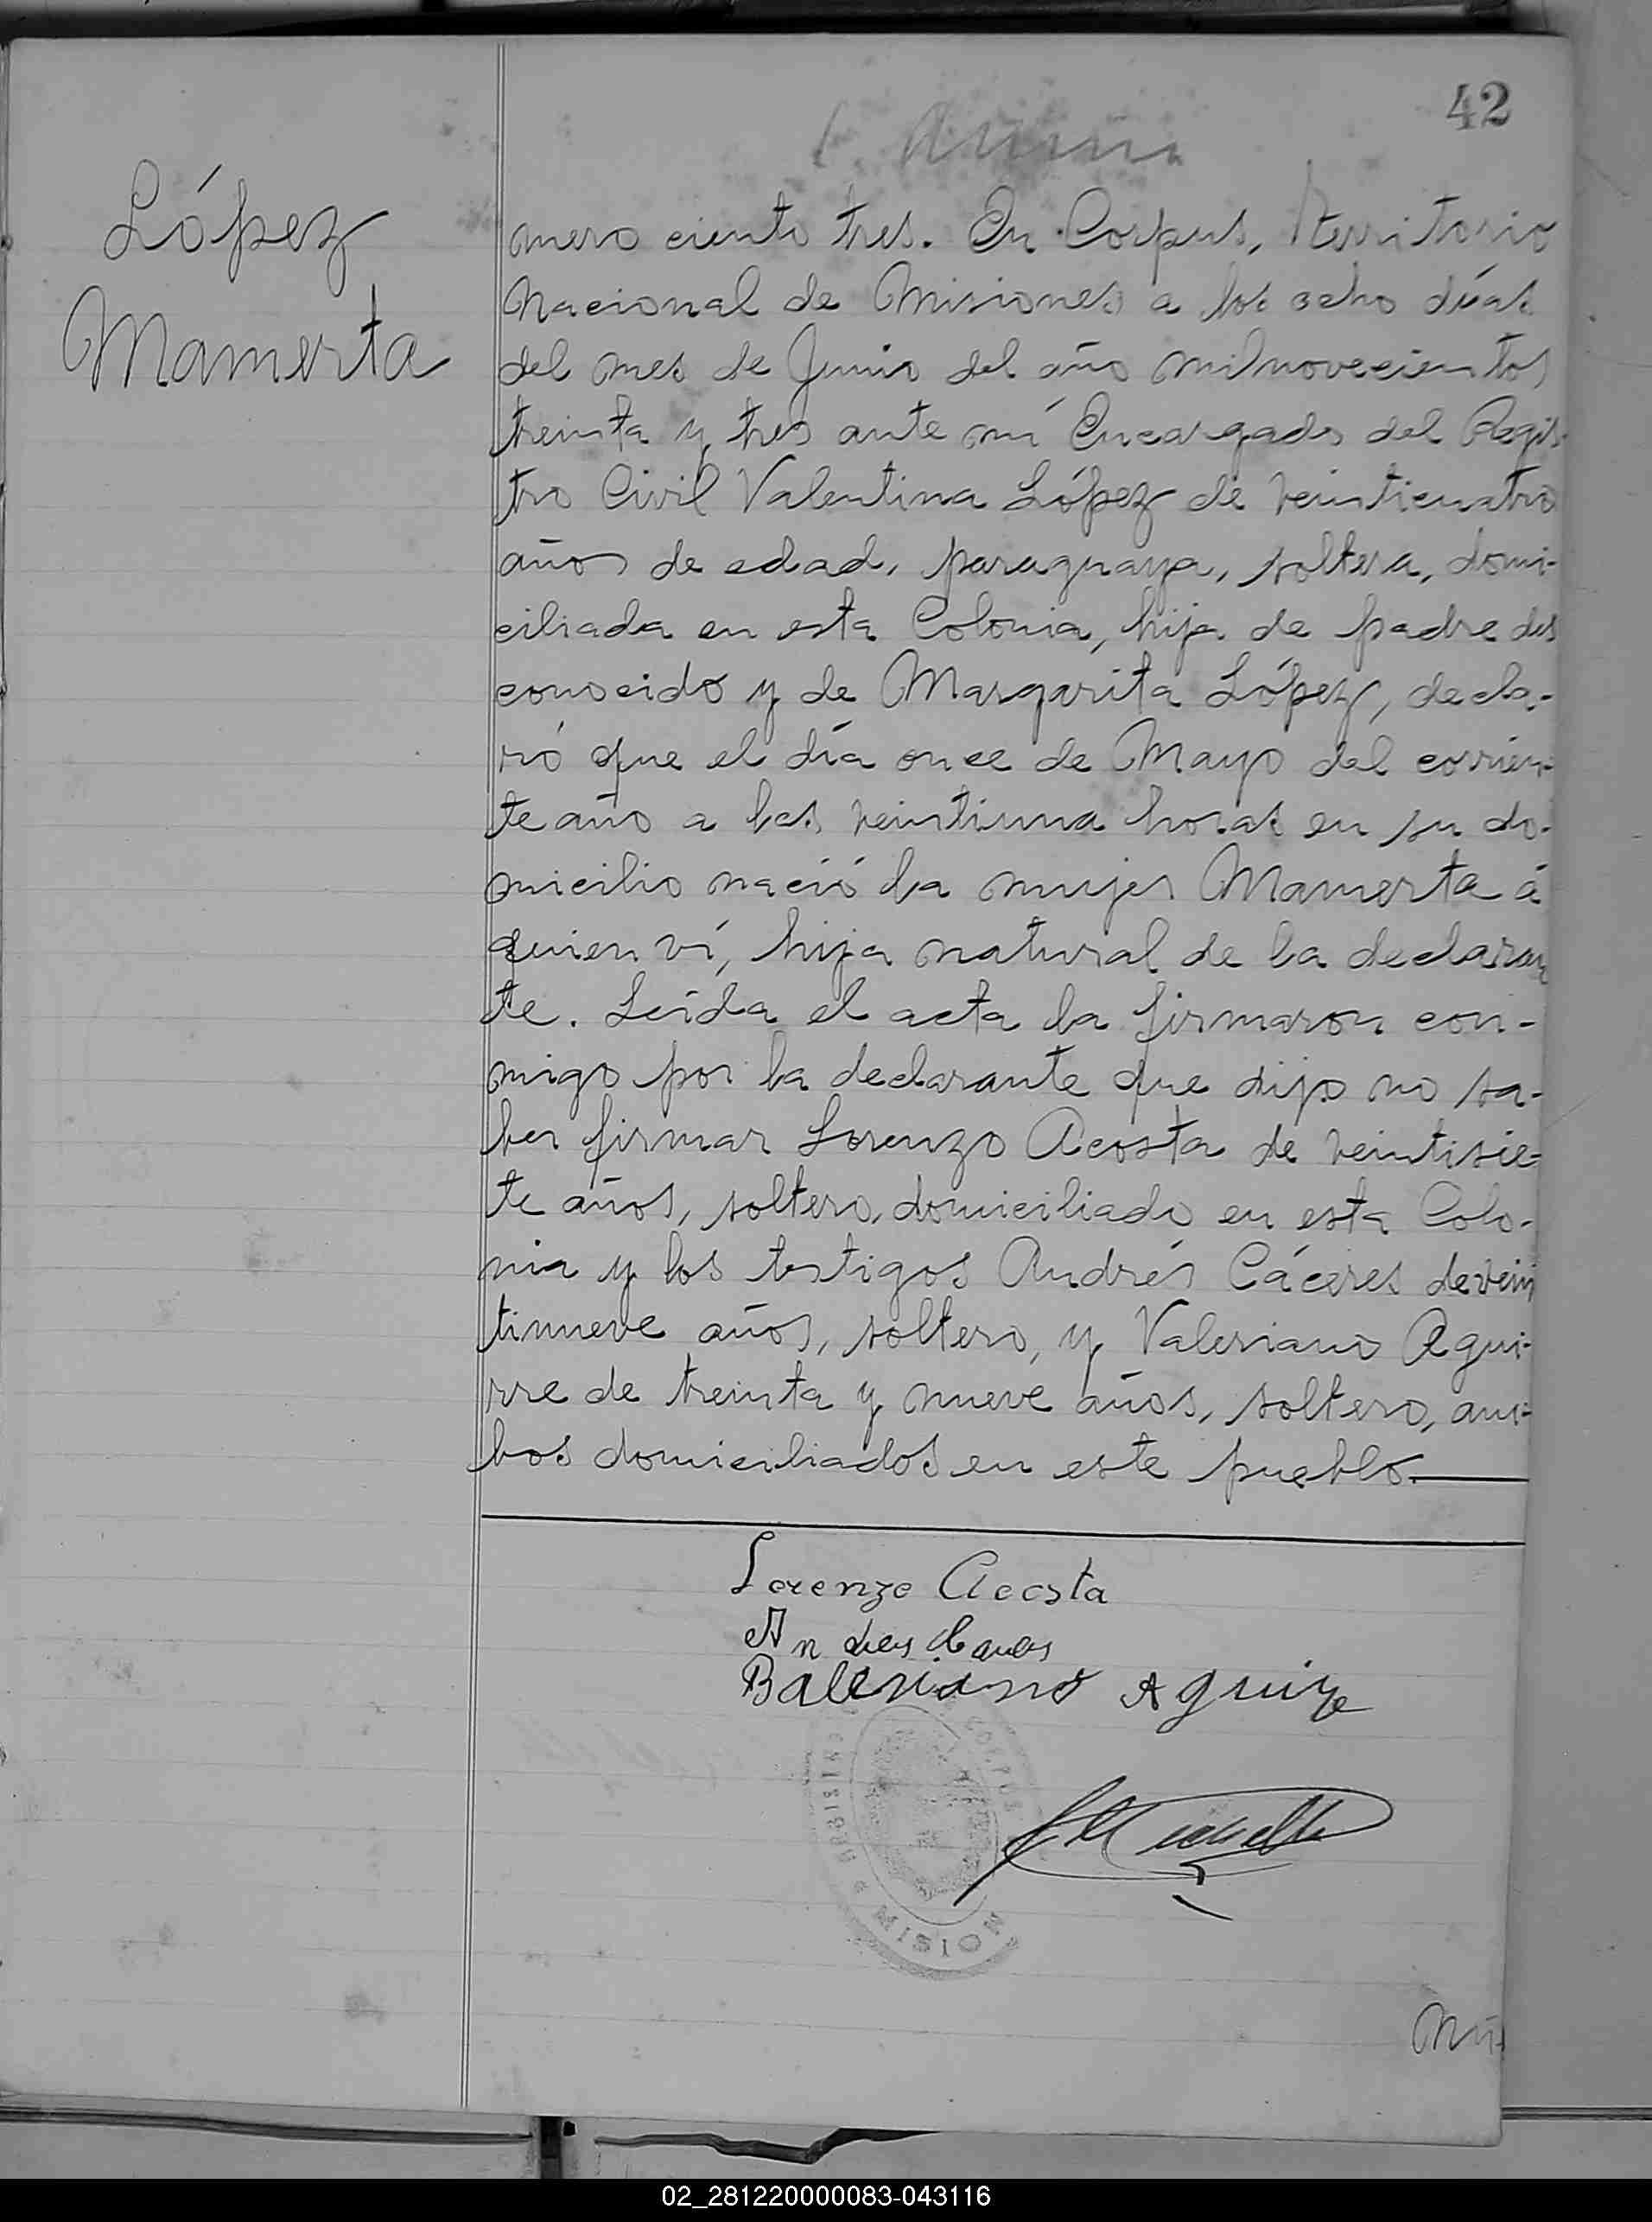 42
López
Mamerta
mero ciento tres. En Corpus, Territorio
Nacional de Misiones a los ocho días
del mes de Junio del año milnovecientos
treinta y tres ante mí Encargado del Regis-
tro Civil Valentina López de veinticuatro
años de edad, paraguaya, soltera, domi-
ciliada en esta Colonia, hija de padre des
conocido y de Margarita López, decla-
ró que el día once de Mayo del corrien-
te año a las veintiuna horas en su do-
micilio nació la mujer Mamerta á
quien ví, hija natural de la declaran
te. Leída el acta la firmaron con-
migo por la declarante que dijo no sa-
ber firmar Lorenzo Acosta de veintisie-
te años, soltero, domiciliado en esta Colo-
nia y los testigos Andrés Cáceres de vein
tinueve años, soltero, y Valeriano Agui-
rre de treinta y nueve años, soltero, am-
bos domiciliados en este pueblo.
Lorenzo Acosta
Andres
Baleriano Aguirre
CORPUS
MISION
Nú-
02_281220000083-043116